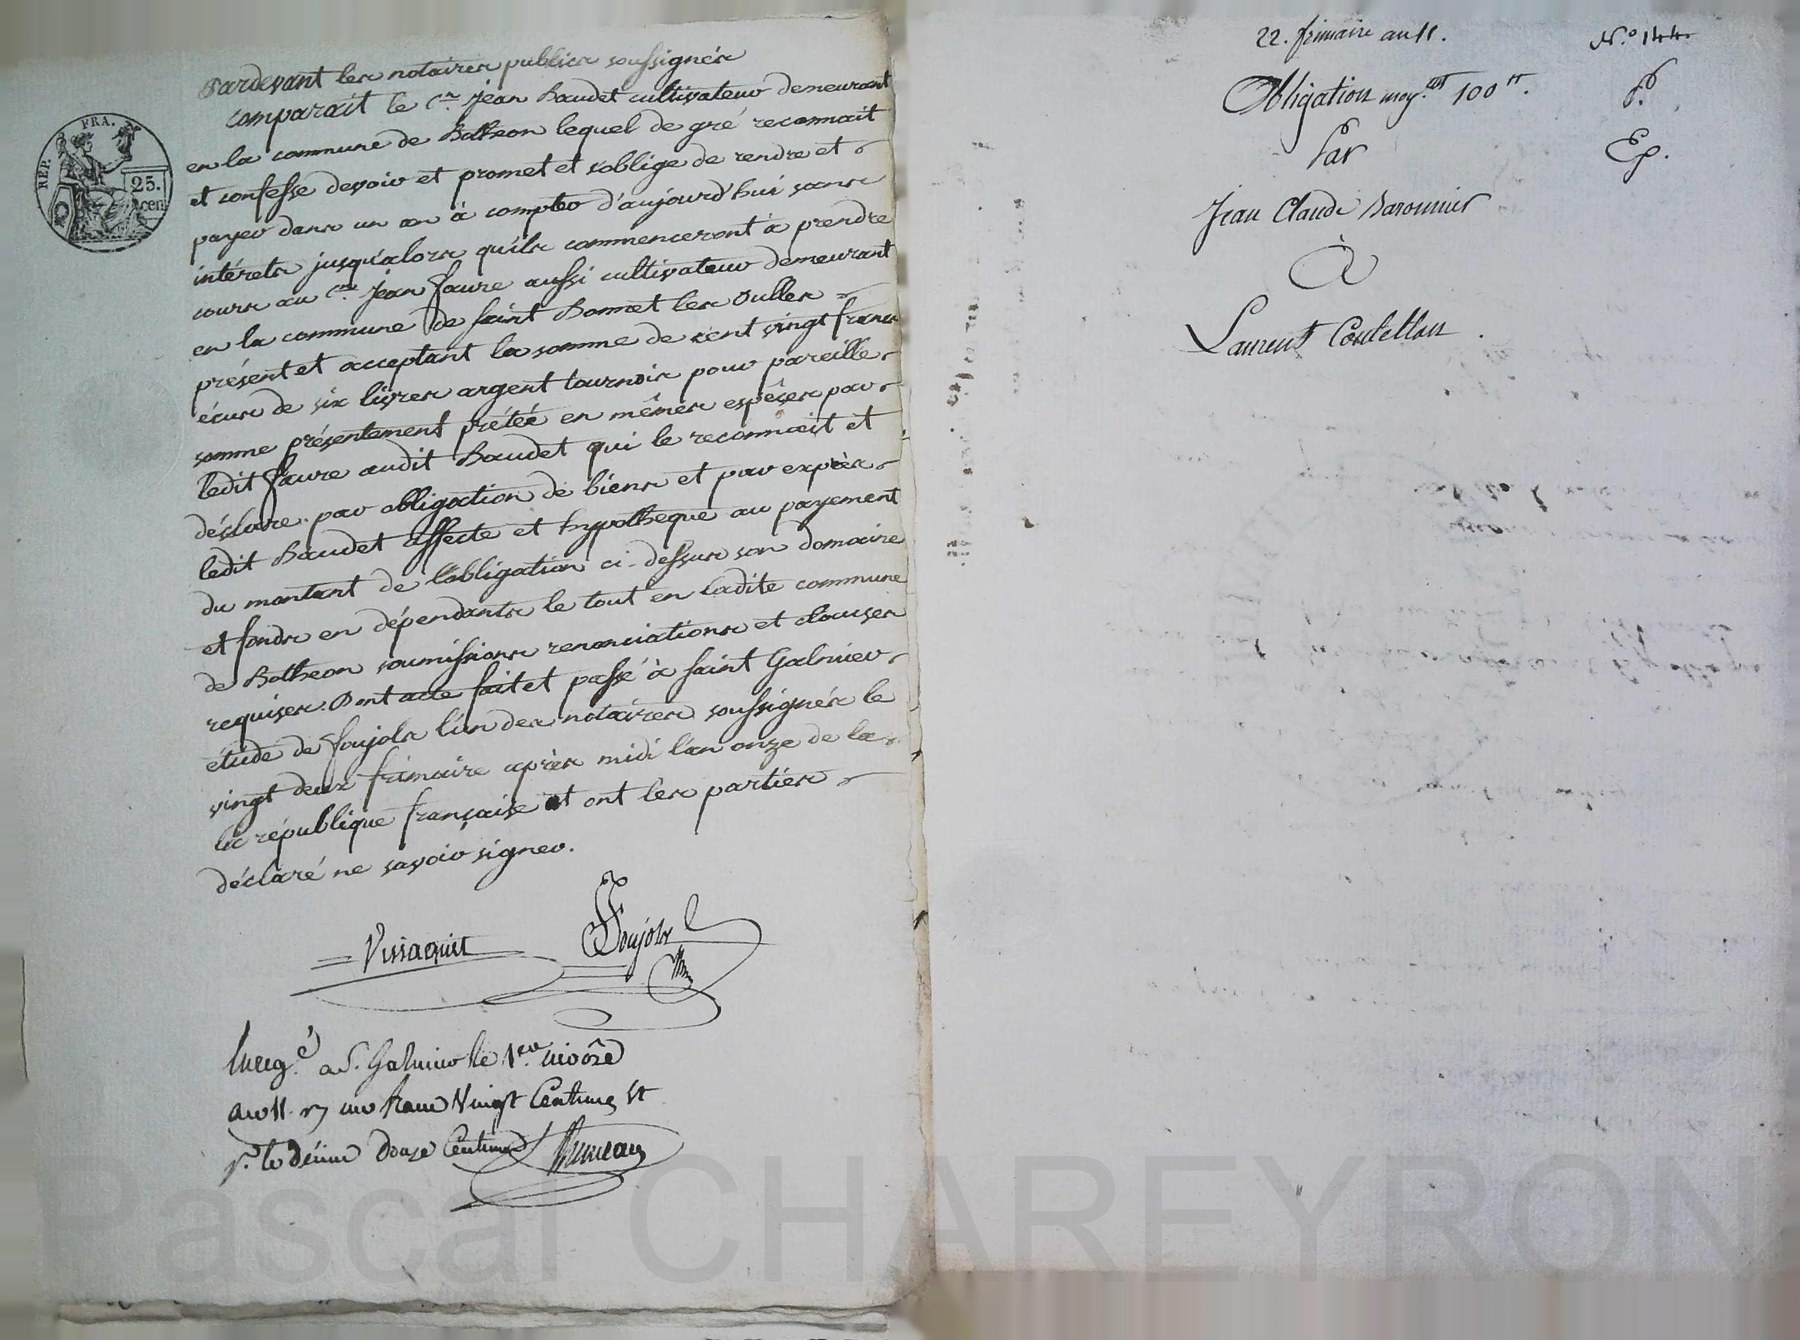 REP. FRA.
25.
cen.
Pardevant les notaires publics soussignés
comparait le Cen. Jean Baudet cultivateur demeurant
en la commune de Botheon lequel de gré reconnait
et confesse devoir et promet et s'oblige de rendre et
payer dans un an à compter d'aujourd'hui sans
intérets jusqu'alors qu'ils commenceront à prendre
cours au Cen. Jean faure aussi cultivateur demeurant
en la commune de Saint Bonnet les Oulles
présent et acceptant la somme de cent vingt francs
écus de six livres argent tournois pour pareille
somme présentement prétée en mêmes espéces par
ledit faure audit Baudet qui le reconnait et
déclare. par obligation de biens et par exprès
ledit Baudet affecte et hypotheque au payement
du montant de l'obligation ci-dessus son domaine
et fonds en dépendants le tout en ladite commune
de Botheon soumissions renonciations et clauses
requises. Dont acte fait et passé à Saint Galmier
étude de foujols l'un des notaires soussignés le
vingt deux frimaire après midi l'an onze de la
la république française et ont les parties
déclaré ne savoir signer.
Vissaguet
Foujols
Enreg.é a St. Galmier le 1er. nivôse
an 11. r7 un franc Vingt Centimes et
pr. le décime Douze Centimes Bruneau
22. frimaire an 11.
N.o 144.
Obligation moy.ant 100 tt.
Par
Ep.
Jean Claude Baronnier
à
Laurent
Pascal CHAREYRON